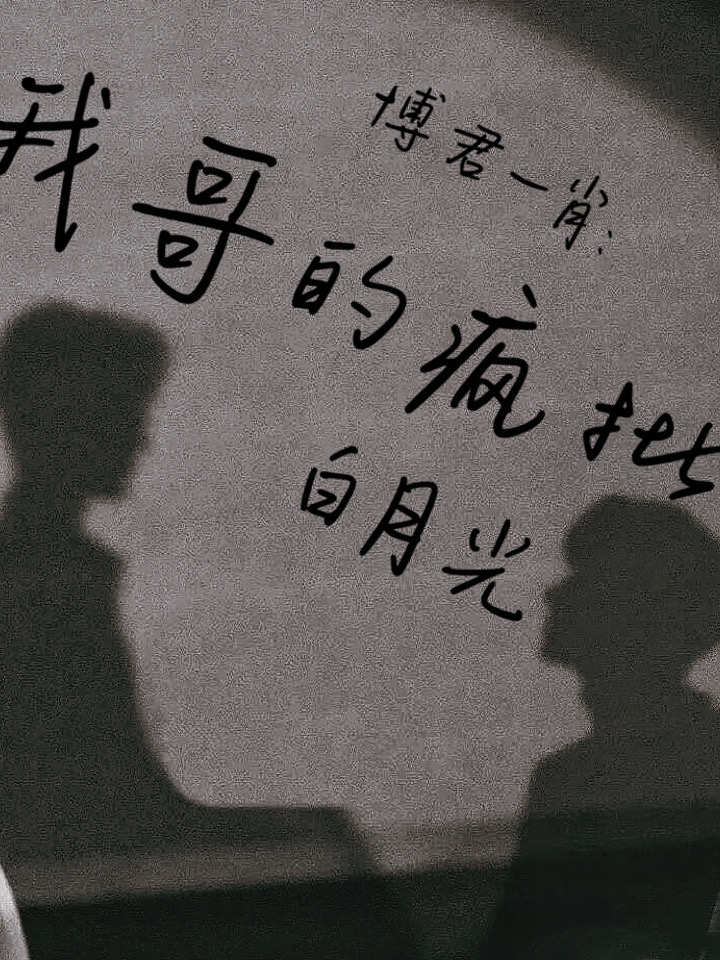 博君一肖:
我哥的疯批
白月光